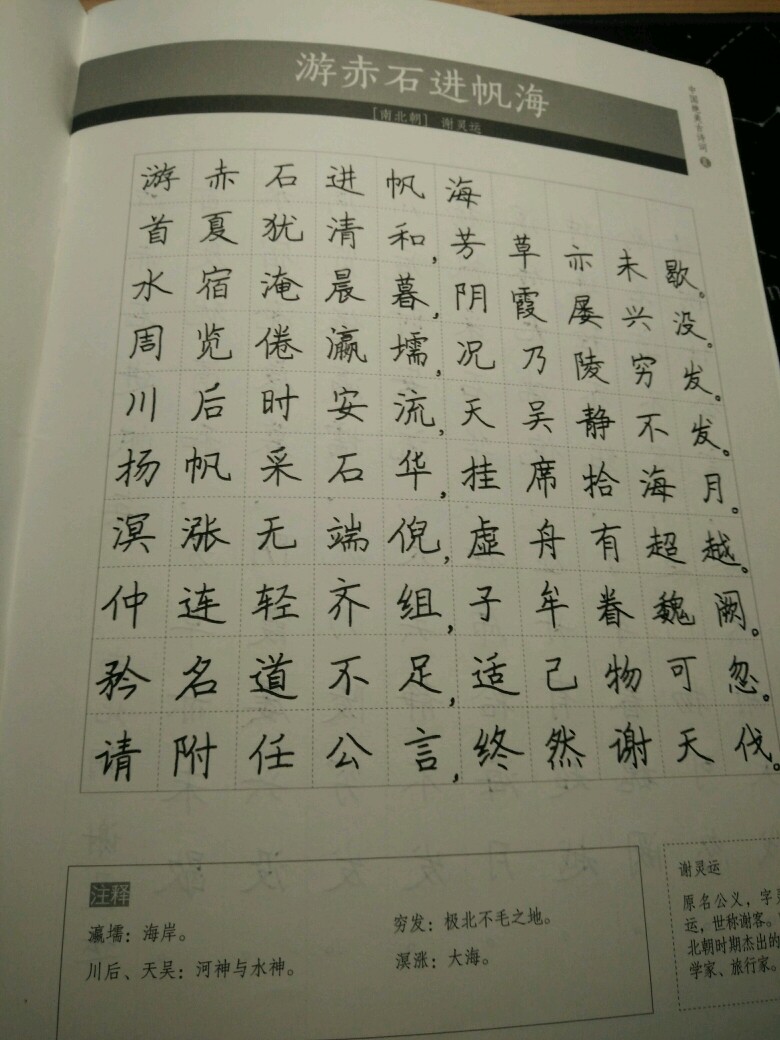 游赤石进帆海
[南北朝] 谢灵运
中国绝美古诗词
游赤石进帆海
首夏犹清和,芳草亦未歇。
水宿淹晨暮,阴霞屡兴没。
周览倦瀛壖,况乃陵穷发。
川后时安流,天吴静不发。
扬帆采石华,挂席拾海月。
溟涨无端倪,虚舟有超越。
仲连轻齐组,子牟眷魏阙。
矜名道不足,适己物可忽。
请附任公言,终然谢天伐。
注释
瀛壖：海岸。
穷发：极北不毛之地。
川后、天吴：河神与水神。
溟涨：大海。
谢灵运
原名公义，字
运，世称谢客。
北朝时期杰出的
学家、旅行家。